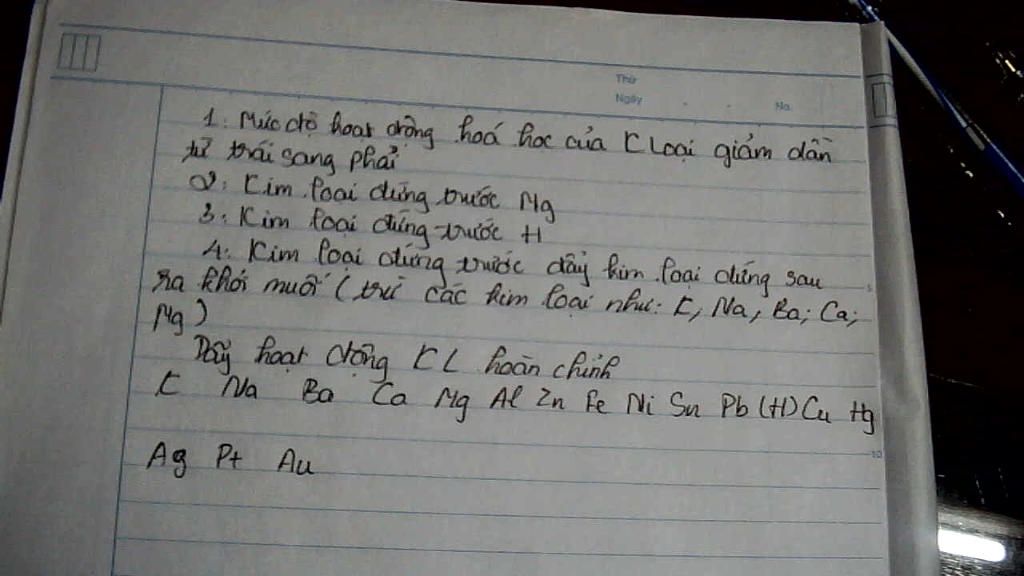 Thứ
Ngày . . No.
1: Mức độ hoạt động hoá học của KLoại giảm dần
từ trái sang phải
2: Kim loại đứng trước Mg
3: Kim loại đứng trước H
4: Kim loại đứng trước đẩy kim loại đứng sau
ra khỏi muối (trừ các kim loại như: K, Na, Ba; Ca;
Mg)
Dãy hoạt động KL hoàn chỉnh
K Na Ba Ca Mg Al Zn Fe Ni Sn Pb (H) Cu Hg
10
Ag Pt Au